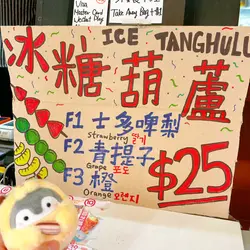 Visa
Master Card
Wechat Pay
Take Away Bag +$1
ICE TANGHULU
冰糖葫蘆
F1 士多啤梨
Strawberry 딸기
F2 青提子
Grape 포도
F3 橙
Orange 오렌지
$25